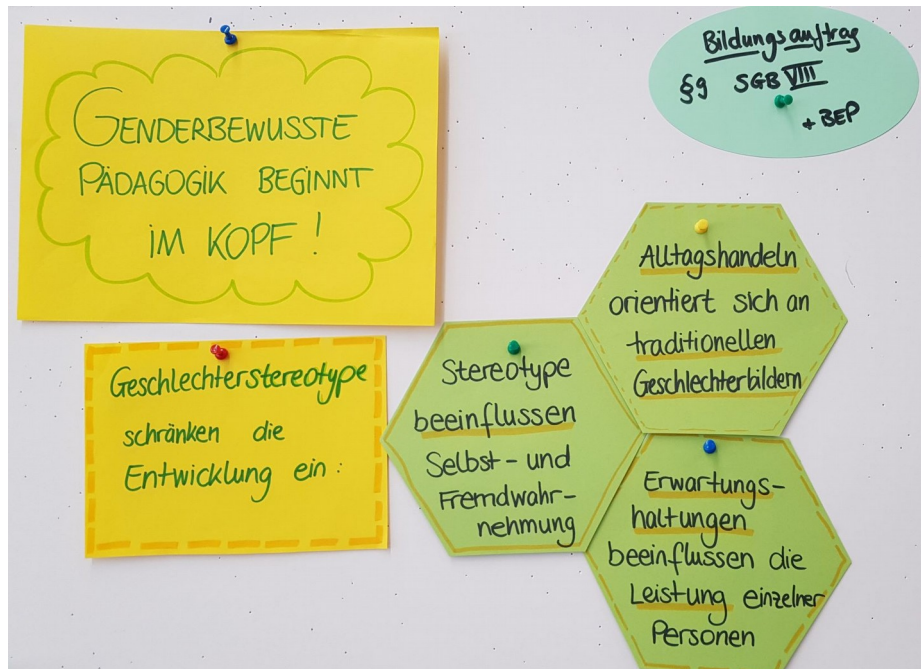 GENDERBEWUSSTE
PÄDAGOGIK BEGINNT
IM KOPF!
Bildungsauftrag
§9 SGB VIII
+ BEP
Geschlechterstereotype
schränken die
Entwicklung ein:
Stereotype
beeinflussen
Selbst- und
Fremdwahr-
nehmung
Alltagshandeln
orientiert sich an
traditionellen
Geschlechterbildern
Erwartungs-
haltungen
beeinflussen die
Leistung einzelner
Personen